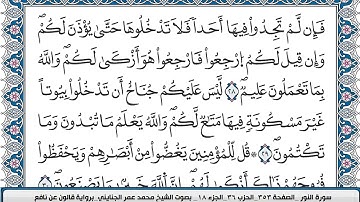 فَإِن لَّمْ تَجِدُوا فِيهَا أَحَداً فَلَا تَدْخُلُوهَا حَتَّىٰ يُؤْذَنَ لَكُمْ
وَإِن قِيلَ لَكُمُ ارْجِعُوا فَارْجِعُوا هُوَ أَزْكَىٰ لَكُمْ وَاللَّهُ
بِمَا تَعْمَلُونَ عَلِيمٌ ٢٨ لَّيْسَ عَلَيْكُمْ جُنَاحٌ أَن تَدْخُلُوا بِيُوتاً
غَيْرَ مَسْكُونَةٍ فِيهَا مَتَٰعٌ لَّكُمْ وَاللَّهُ يَعْلَمُ مَا تُبْدُونَ وَمَا
تَكْتُمُونَ ٢٩ قُل لِّلْمُؤْمِنِينَ يَغُضُّوا مِنْ أَبْصَٰرِهِمْ وَيَحْفَظُوا
فُرُوجَهُمْ ذَٰلِكَ أَزْكَىٰ لَهُمْ إِنَّ اللَّهَ خَبِيرٌ بِمَا يَصْنَعُونَ
سورة النور _الصفحة ٣٥٣ _الحزب ٣٦ _الجزء ١٨ _ بصوت الشيخ محمد عمر الجنايني _برواية قالون عن نافع